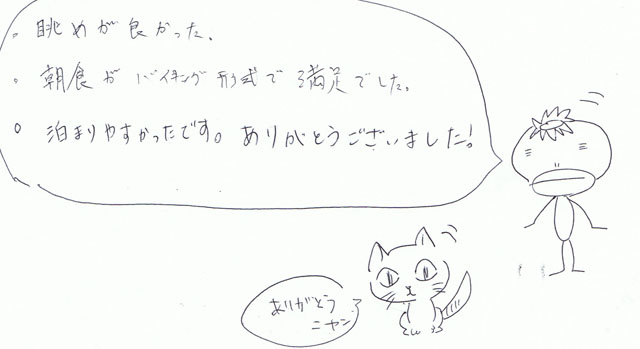 。眺めが良かった。
。朝食がバイキング形式で満足でした。
。泊まりやすかったです。ありがとうございました!
ありがとう
ニャン